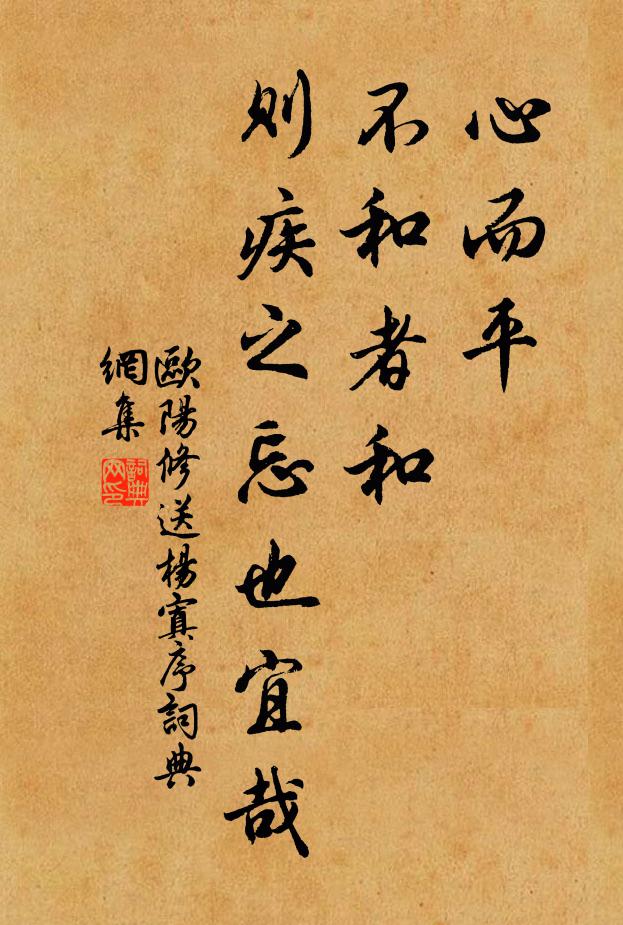 心而平
不和者和
則疾之忘也宜哉
歐陽修送楊寘序詞典
網集
詞典
网印